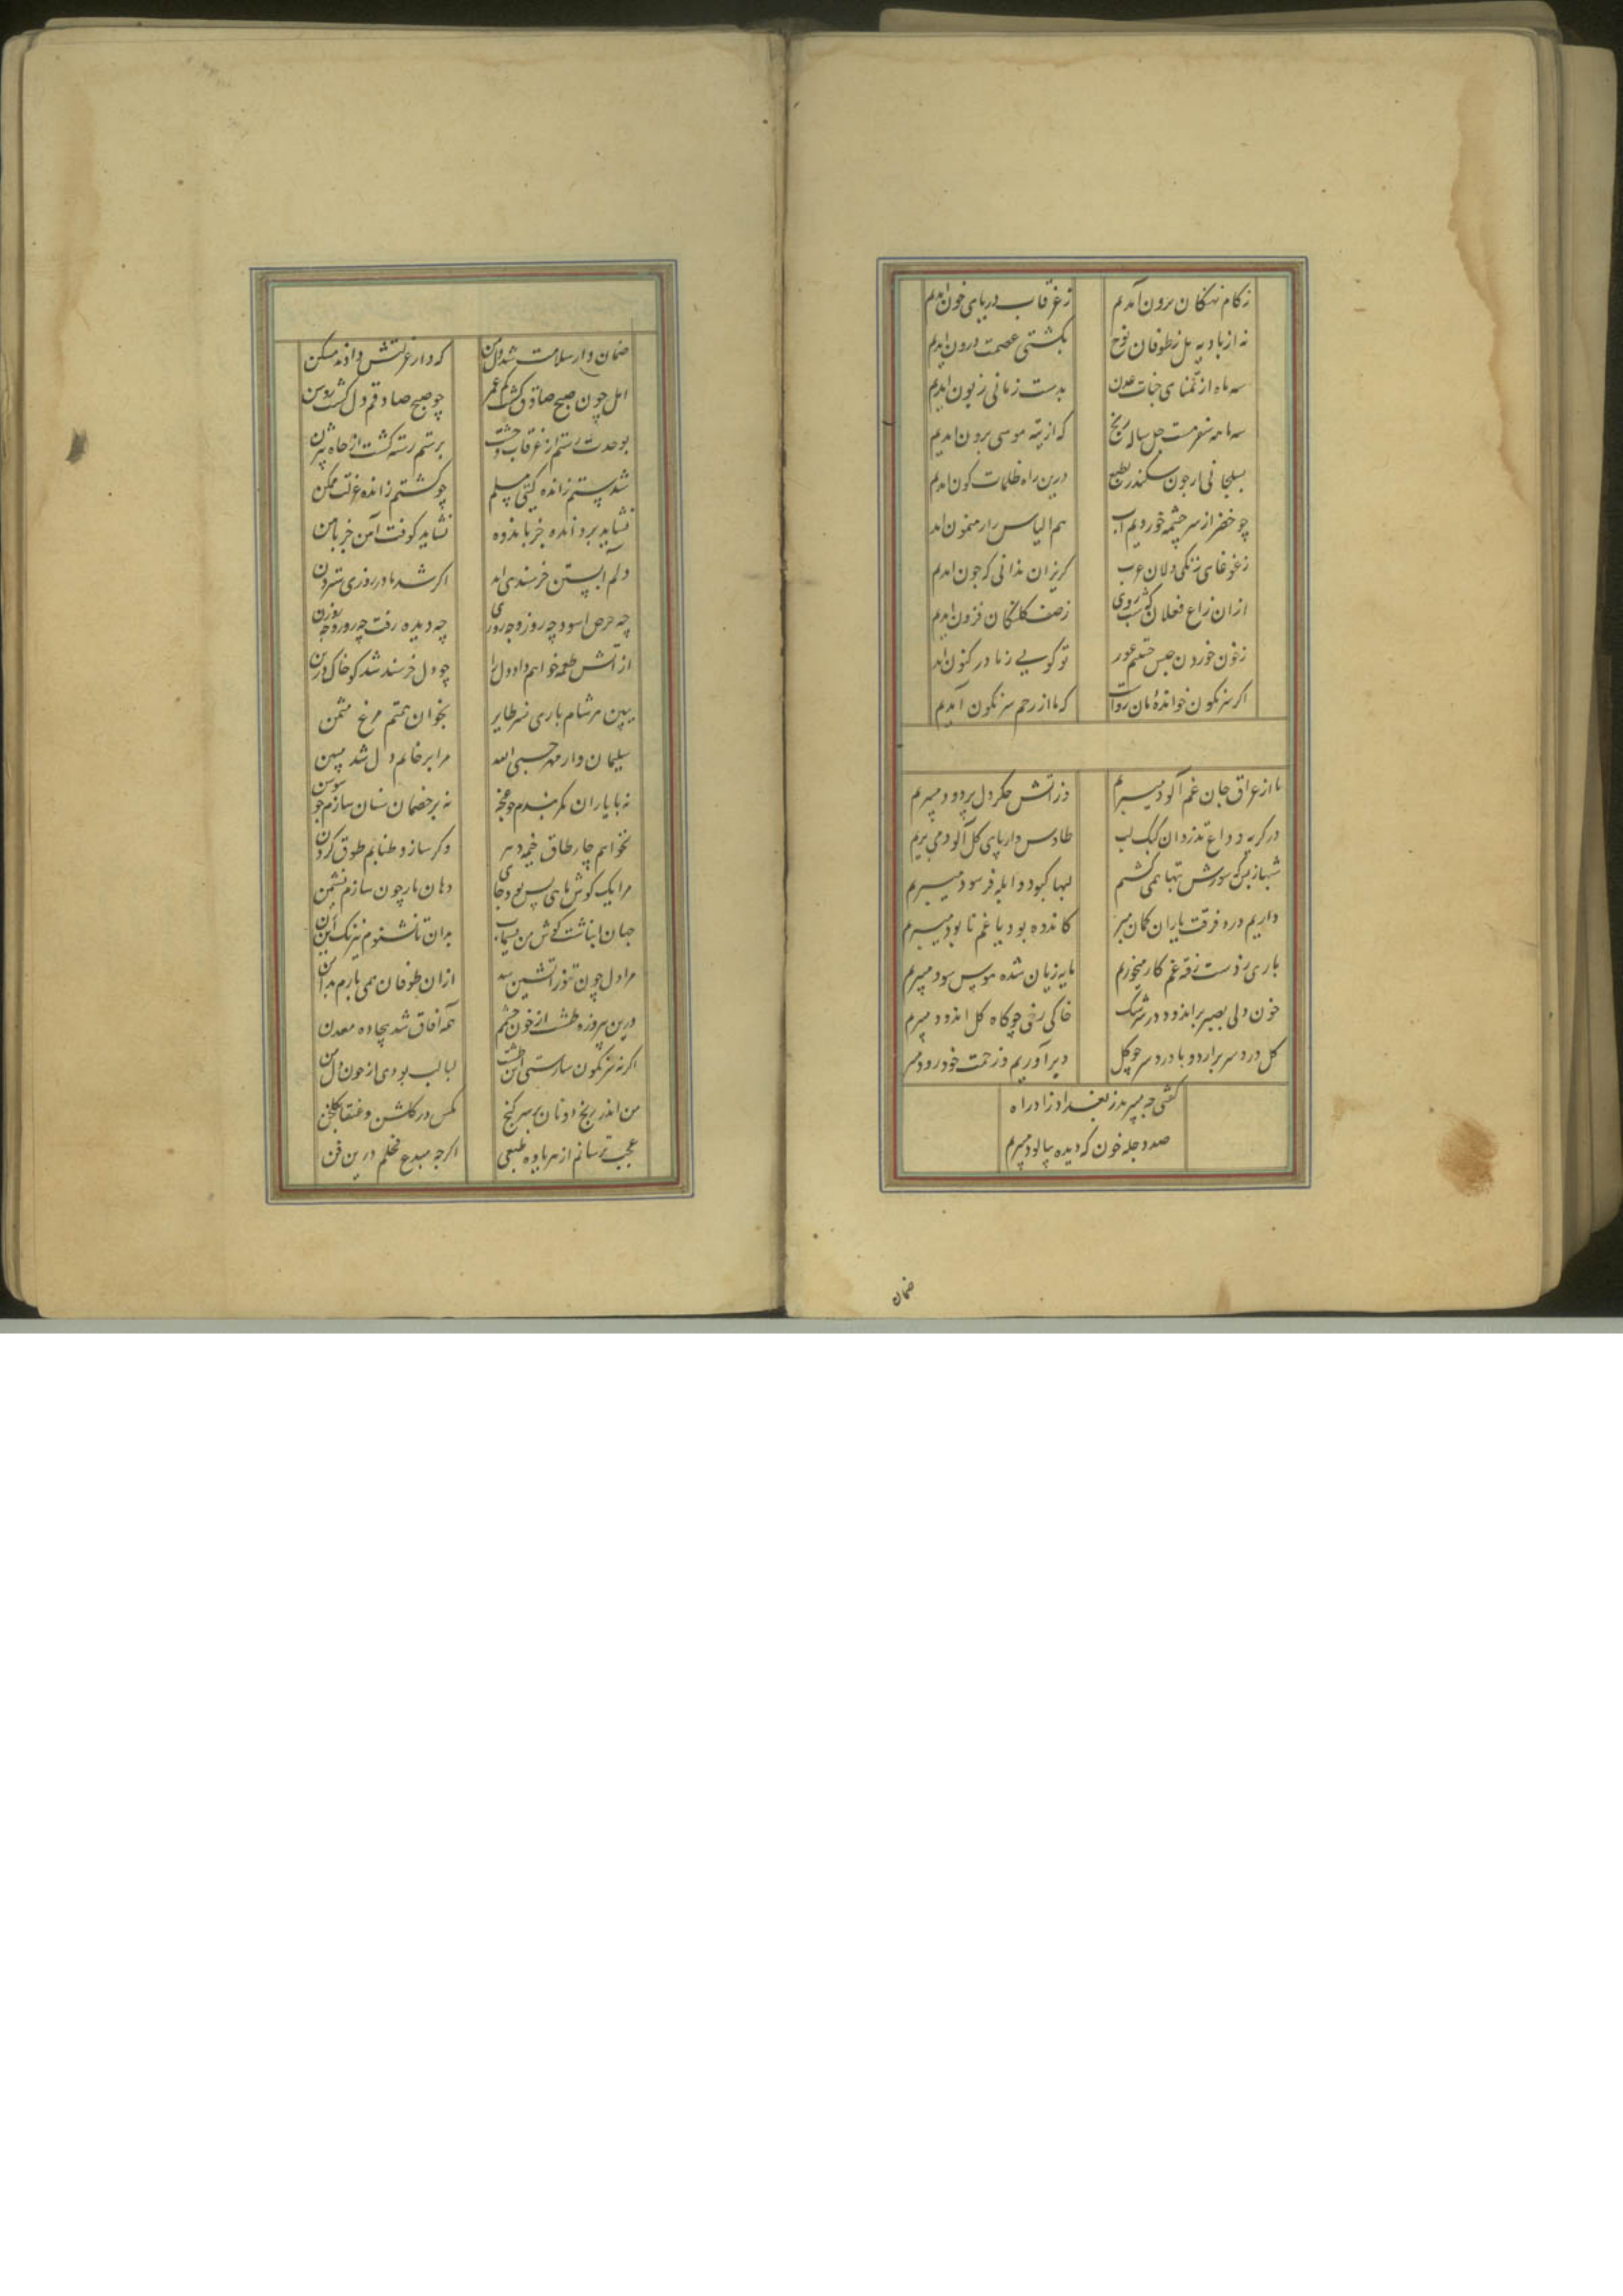 زکام نهنگان برون آمدیم زغرقاب دریای خون امدیم
نه از بادیه بل زطوفان نوح بکشتی عصمت درون امدیم
سه ماه از تمنای جنات عدن بدست زمانی زبون امدیم
سه مامه سفر هست چل ساله رنج که از تیه موسی برون امدیم
چون سکندر درین راه ظلمات کون امدیم
چو خضر از سر چشمه خوردیم اب هم الیاس را رهنمون امد
زغوغای زنکی دلان عرب کریزان ندانی که چون امدیم
ازان زاغ فعلان زصف کلنکان فزون امدیم
زخون خوردن حبس تو کویی زنا در کنون امد
اکر سرنکون خوانده مان رواست که ما از رحم سرنکون آمدیم
ما از عراق جان غم آلود میبریم وز اتش جکر دل پر دود میبریم
در کریه وداع تذروان کبک لب طاوس وار پای کل آلود می بریم
لبها کبود و ابله فرسود میبریم
داریم درد فرقت یاران کمان مبر کاندوه بود یا غم نابود میبریم
باری زدست رفته غم کار میخوریم مایه زیان شده هوس سود میبریم
خون دلی بصبر براندود در سرشک خاکی رخی چو کاه کل اندود میبرم
کل درد سر برارد و ما درد سر چو کل دیر آوریم وزحمت خود زود میبر
کفتی چه میبرید زبغداد زاد راه
صد دجله خون که دیده بپالود میبرم
ضمان
ضمان دار سلامت شد دل من که دار عزلتش دادند مسکن
امل چون صبح صادق کشت کم عمر چو صبح صادقم دل کشت روشن
بوحدت رستم از غرقاب وحشت برستم رسته کشت از چاه بیژن
شدستم زانده کیتی مسلم چو کشتم زانده عزلت ممکن
نشاید برد انده جز باندوه نشاید کوفت آهن جز باهن
دلم آبستن خرسندی امد اکر شد مادر روزی سترون
چه حرص اسود چه روزه چه روزی چه دیده رفت چه روز و چه روزن
از آتش طعمه خواهم داد دل را چو دل خرسند شد کو خاک خور تن
ببین هر شام باری نسر طایر بخوان همتم مرغ مثمن
سلیمان وار مهر حسبی الله مرا بر خاتم دل شد مبین
نه با یاران کمر بندم چو غنچه نه بر خصمان سنان سازم چو سوسن
نخواهم چار طاق خیمه دهر وکر سازد طنابم طوق کردن
مرا یک کوش ماهی بس بود جای دهان مار چون سازم نشیمن
جهان انباشت کوش من بسیماب بدان تا نشنوم نیرنک این زن
مرا دل چون تنور اتشین شد ازان طوفان همی بارم بدامن
درین پیروزه طشت از خون چشم همه آفاق شد بیجاده معدن
اکر نه سرنکون سارستی این طشت لبالب بودی از خون دل من
من اندر رنج و دونان بر سر کنج مکس در کلشن و عنقا بکلخن
عجب ترسانم از هر ماده طبعی اکرچه مبدع فحلم درین فن